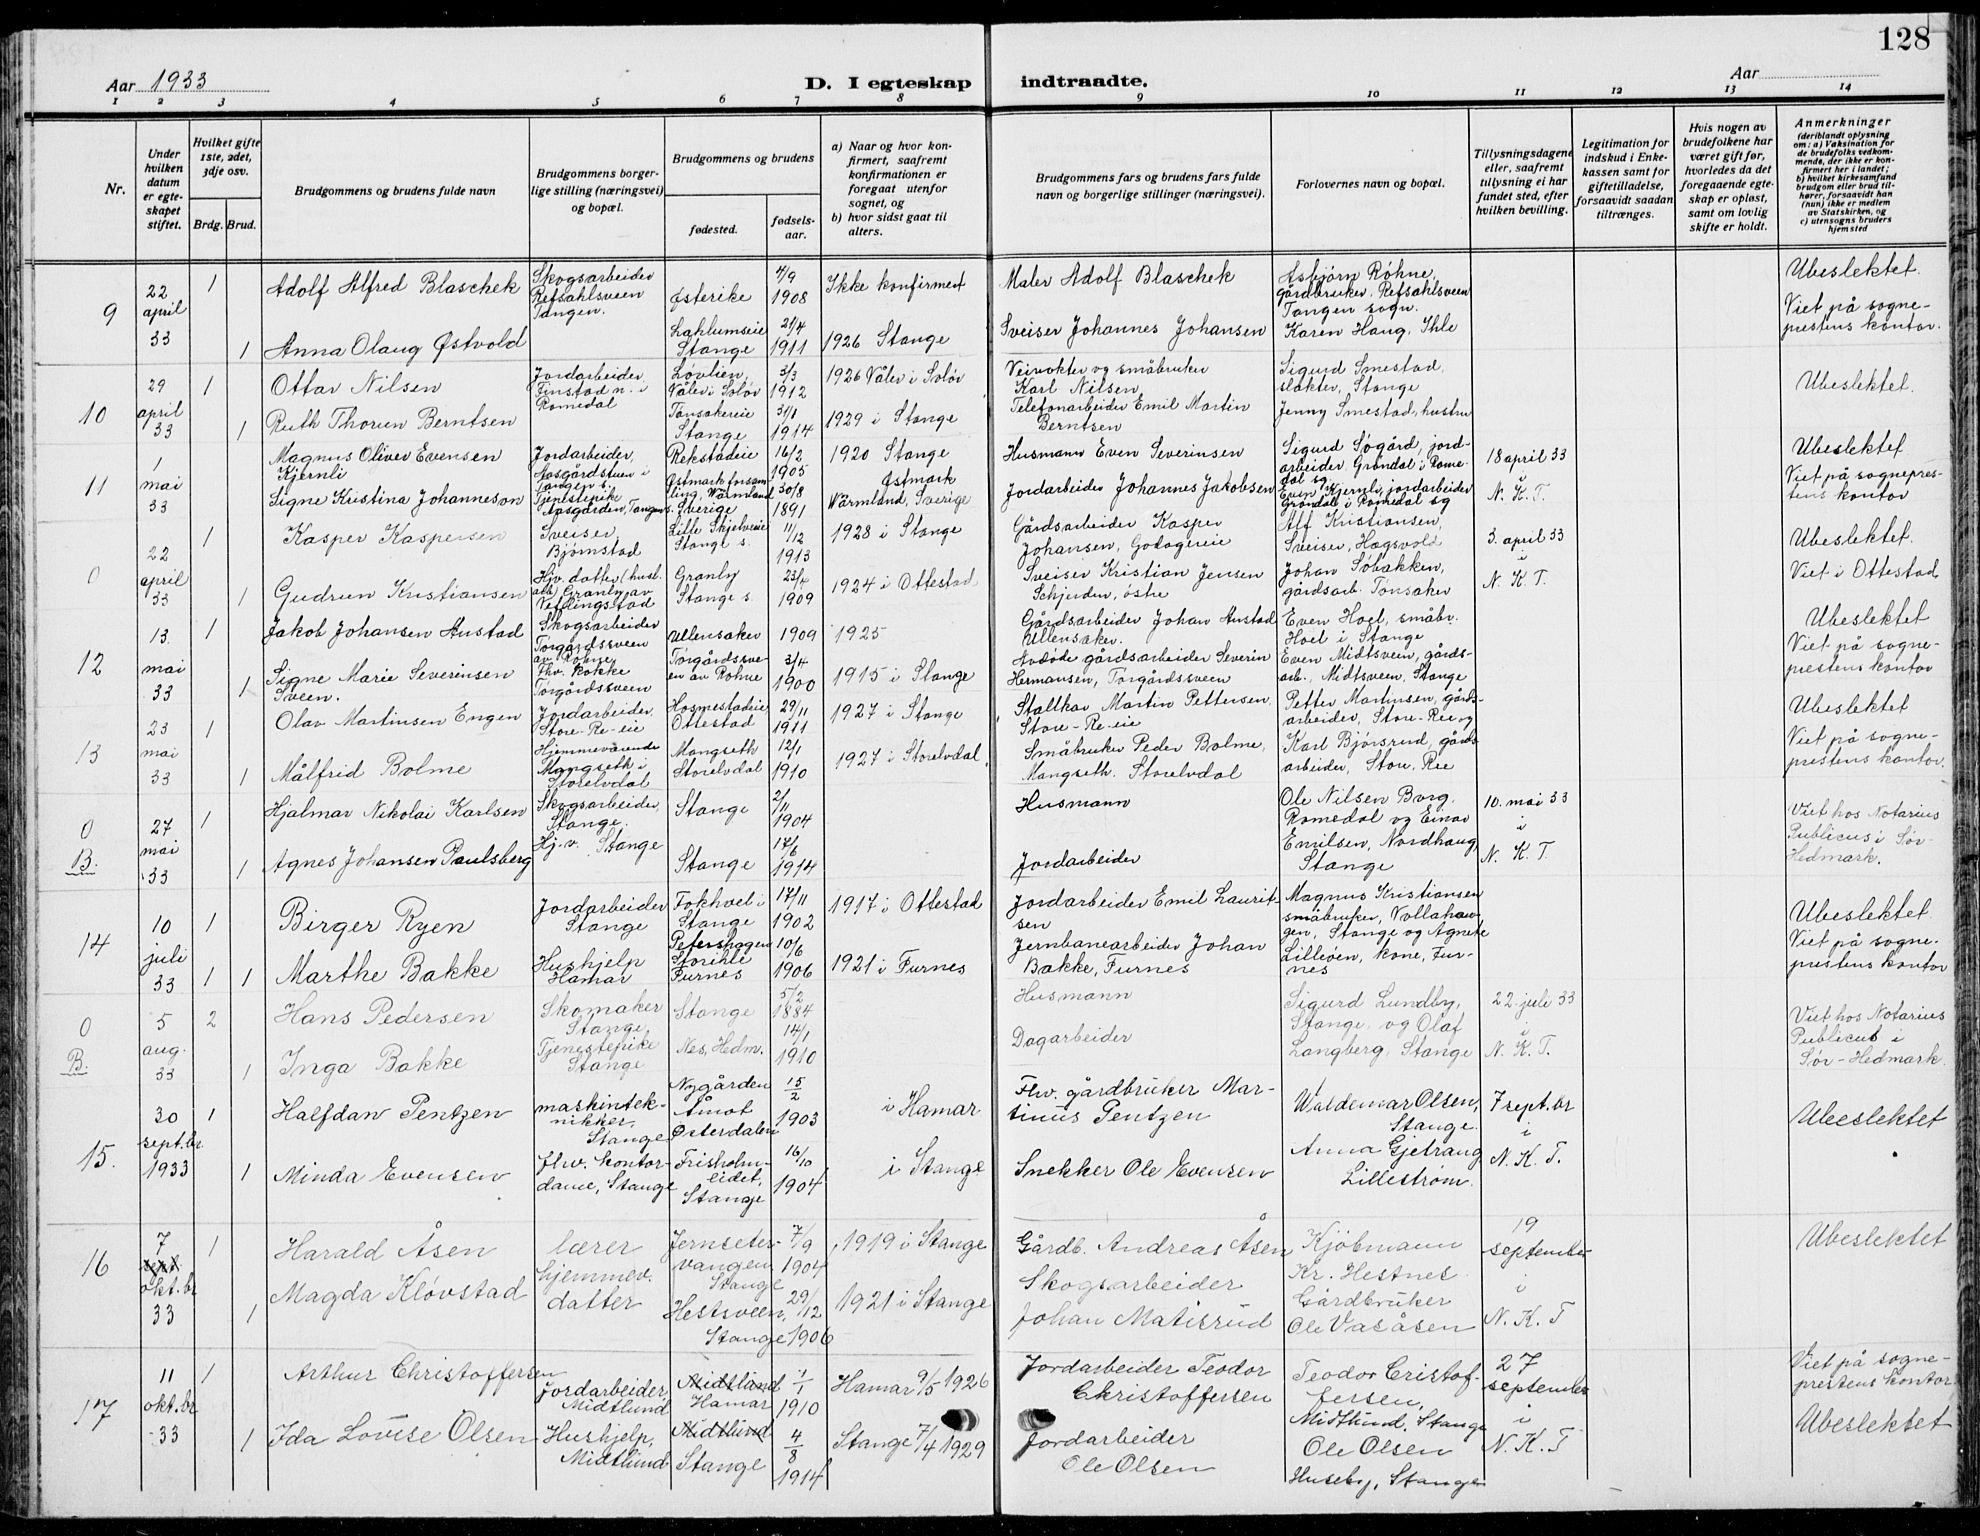 128
Aar 1933
D. I egteskap indtraadte.
Aar
1 2 3 4 5 6 7 8 9 10 11 12 13 14
Nr.
Under hvilken datum er egteskapet stiftet.
Hvilket gifte 1ste, 2det, 3dje osv.
Brdg. Brud.
Brudgommens og brudens fulde navn
Brudgommens borgerlige stilling (næringsvei) og bopæl.
Brudgommens og brudens
fødested.
fødselsaar.
a) Naar og hvor konfirmert, saafremt konfirmationen er foregaat utenfor sognet, og
b) hvor sidst gaat til alters.
Brudgommens fars og brudens fars fulde navn og borgerlige stillinger (næringsvei).
Forlovernes navn og bopæl.
Tillysningsdagene eller, saafremt tillysning ei har fundet sted, efter hvilken bevilling.
Legitimation for indskud i Enkekassen samt for giftetilladelse, forsaavidt saadan tiltrænges.
Hvis nogen av brudefolkene har været gift før, hvorledes da det foregaaende egteskap er opløst, samt om lovlig skifte er holdt.
Anmerkninger
(deriblandt oplysning om: a) Vaksination for de brudefolks vedkommende, der ikke er konfirmert her i landet; b) hvilket kirkesamfund brudgom eller brud tilhører, forsaavidt han (hun) ikke er medlem av Statskirken, og c) utensogns bruders hjemsted
9
22 april 33
1
Adolf Alfred Blaschek
Skogsarbeider Refsahlsveen Tangen.
Østerike
4/9 1908
Ikke konfirmert
Maler Adolf Blaschek
Asbjørn Røhne, gårdbruker, Refsahlsveen Tangen sogn.
Ubeslektet.
Viet på sogneprestens kontor.
1
Anna Olaug Østvold
Lahlumseie Stange
21/4 1911
1926 Stange
Sveiser Johannes Johansen
Karen Haug, Ihle
10
29 april 33
1
Ottar Nilsen
Jordarbeider Finstad n. i Romedal
Løvlien, Våler i Solør
3/3 1912
1926 Våler i Solør
Veivokter og småbruker Karl Nilsen
Sigurd Smestad, slakter, Stange
Ubeslektet.
1
Ruth Thorun Berntsen
Tønsakereie Stange
31/1 1914
1929 i Stange
Telefonarbeider Emil Martin Berntsen
Jenny Smestad, hustru
11
1 mai 33
Magnus Oliver Evensen Kjernli
Jordarbeider, Aasgårdstuen i Tangen s.
Rekstadeie
16/2 1905
1920 Stange
Husmann Even Severinsen
Sigurd Søgård, jordarbeider Grøndal i Romedal sg
18 april 33
i
N. K. T.
Ubeslektet
Viet på sogneprestens kontor
Signe Kristina Johanneson
Tjenstepike Aasgården, Tangen s.
Østmark forsamling, Wärmland Sverige
30/8 1891
Østmark Wärmland, Sverige
Jordarbeider Johannes Jakobsen
Even Kjernli, jordarbeider Grøndal i Romedal sg
0
22 april 33
1
Kasper Kaspersen
Sveiser, Bjørnstad
Lille Skjelveie Stange s.
11/12 1913
1928 i Stange
Gårdsarbeider Kasper Johansen, Godagereie
Alf Kristiansen, Sveiser, Hægsvold
3. april 33
i
N. K T.
Ubeslektet.
Viet i Ottestad
1
Gudrun Kristiansen
Hjv. datter (husl. arb) Granly av Veflingstad
Granly Stange s.
23/4 1909
1924 i Ottestad
Sveiser Kristian Jensen Schjerden, østre
Johan Søbakken, gårdsarb. Tønsaker
12
13. mai 33
1
Jakob Johansen Austad
Skogsarbeider Torgårdsveen av Rohne
Ullensaker
1909
1925
Gårdsarbeider Johan Austad Ullensaker.
Even Hoel, småbr. Hoel i Stange
Ubeslektet
Viet på sogneprestens kontor
1
Signe Marie Severinsen Sveen.
Fhv. kokke Torgårdssveen
Torgårdssveen av Rohne
3/4 1900
1915 i Stange
Avdøde gårdsarbeider Severin Hermansen, Torgårdssveen
Even Midtsveen, gårdsarb., Midtsveen, Stange
13
23 mai 33
1
Olav Martinsen Engen
Jordarbeider, Store-Re-eie
Hosmestadeie Ottestad
29/11 1911
1927 i Stange
Stallkar Martin Pettersen, Store-Re-eie
Petter Martinsen, gårdsarbeider, Store-Ree og
Ubeslektet
Viet på sogneprestens kontor.
1
Målfrid Bolme
Hjemmeværende Mangseth i Storelvdal
Mangseth Storelvdal
12/1 1910
1927 i Storelvdal
Småbruker Peder Bolme, Mangseth, Storelvdal
Karl Bjørsrud, gårdsarbeider, Store. Ree
0
B.
27 mai 33
1
Hjalmar Nikolai Karlsen
Skogsarbeider, Stange.
Stange
2/11 1904
Husmann
Ole Nilsen Borg, Romedal og Einar
10. mai 33
i
N. K. T.
Viet hos Notarius Publicus i Sør-Hedmark.
1
Agnes Johansen Paulsberg
Hj. v. Stange
Stange
17/6 1914
Jordarbeider
Emilsen, Nordhaug, Stange
14
10 juli 33
1
Birger Ryen
Jordarbeider Stange
Fokhvel i Stange
17/11 1902
1917 i Ottestad
Jordarbeider Emil Lauritsen
Magnus Kristiansen småbruker, Vollahaugen, Stange og Agnete
Ubeslektet.
Viet på sogneprestens kontor
1 1
Marthe Bakke
Hushjelp Hamar
Petershagen Storihle Furnes
10/6 1906
1921 i Furnes
Jernbanearbeider Johan Bakke, Furnes
Lilleøen, kone, Furnes
0
B.
5 aug. 33
2
Hans Pedersen
Skomaker Stange
Stange
5/2 1884
Husmann
Sigurd Lundby, Stange og Olaf
22. juli 33
i
N. K. T.
Viet hos Notarius Publicus i Sør-Hedmark
1
Inga Bakke
Tjenestepike Stange
Nes, Hedm.
14/1 1910
Dagarbeider
Langberg, Stange
15.
30 sept.br 1933
1
Halfdan Pentzen
maskinteknikker, Stange
Nygården Åmot Østerdalen
15/2 1903
i Hamar
Fhv. gårdbruker Martinus Pentzen
Waldemar Olsen, Stange.
7 sept. br
i
N. K. T.
Ubeslektet
1
Minda Evensen
fhv. kontordame, Stange
Frisholmeidet, Stange
16/10 1904
i Stange
Snekker Ole Evensen
Anna Gjetrang Lillestrøm.
16
7 sept. okt.br 33
1
Harald Åsen
lærer
Jernsetervangen Stange
7/9 1904
1919 i Stange
Gårdb. Andreas Åsen
Kjøbmann Kr. Hestnes
19 september
i
N. K. T
Ubeslektet
1
Magda Kløvstad
hjemmev. datter
Hestsveen, Stange
29/12 1906
1921 i Stange
Skogsarbeider Johan Matisrud
Gårdbruker Ole Vasåsen
17
11 okt.br 33
1
Arthur Christoffersen
Jordarbeider, Midtlund
Midtlund Hamar
1/1 1910
Hamar 9/5 1926
Jordarbeider Teodor Christoffersen
Teodor Cristoffersen, Midtlund, Stange
27 september
i
N. K. T
Viet på sogneprestens kontor
Ubeslektet
1
Ida Louise Olsen
Hushjelp, Midtlund
Midtlund Stange
4/8 1914
Stange 7/4 1929
Jordarbeider Ole Olsen
Ole Olsen Huseby, Stange